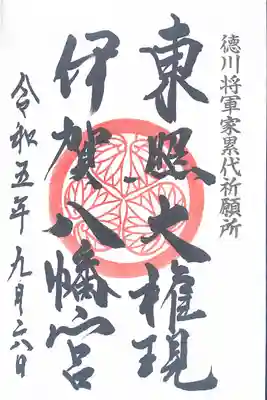 徳川将軍家累代祈願所
東照大権現
伊賀八幡宮
令和五年九月六日